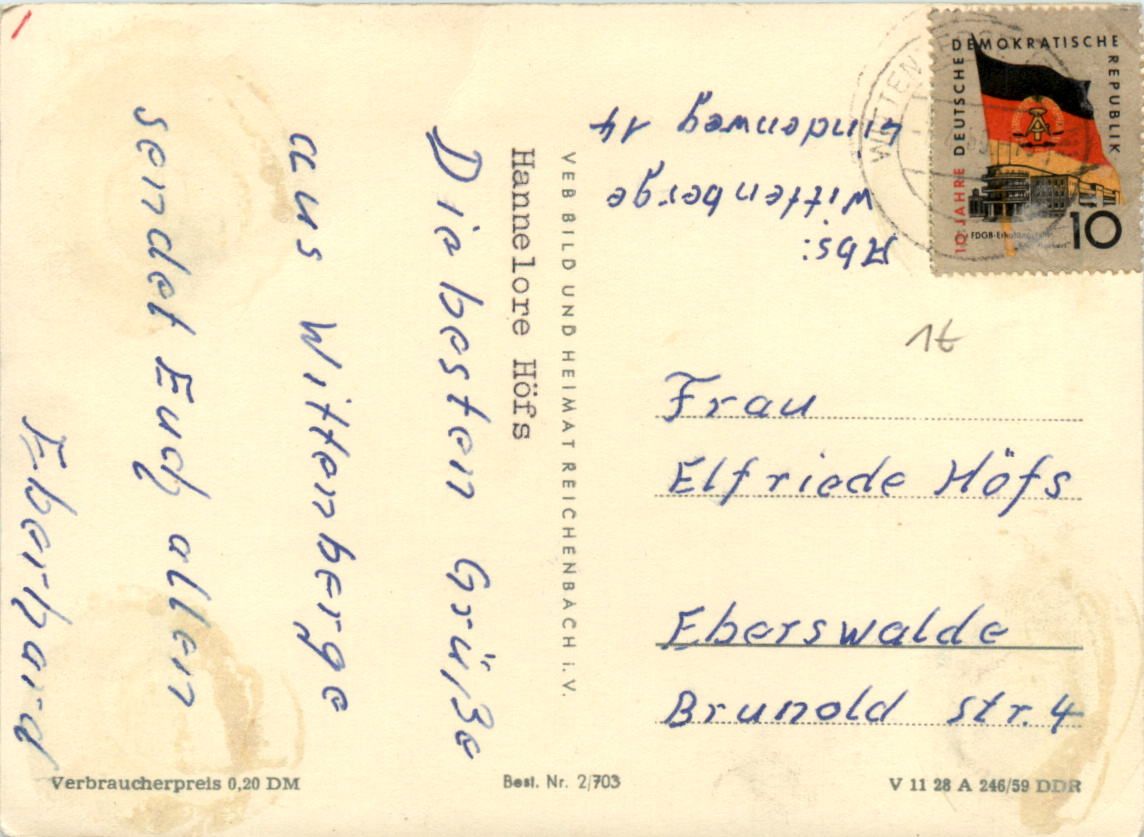 Die besten Grüße
aus Wittenberge
sendet Euch allen
Eberhard
Hannelore Höfs
VEB BILD UND HEIMAT REICHENBACH i. V.
Abs:
Wittenberge
Lindenweg 14
10 JAHRE DEUTSCHE DEMOKRATISCHE REPUBLIK
10
WITTENBERGE
1€
Frau
Elfriede Höfs
Eberswalde
Brunold str. 4
Verbraucherpreis 0,20 DM
Best. Nr. 2/703
V 11 28 A 246/59 DDR